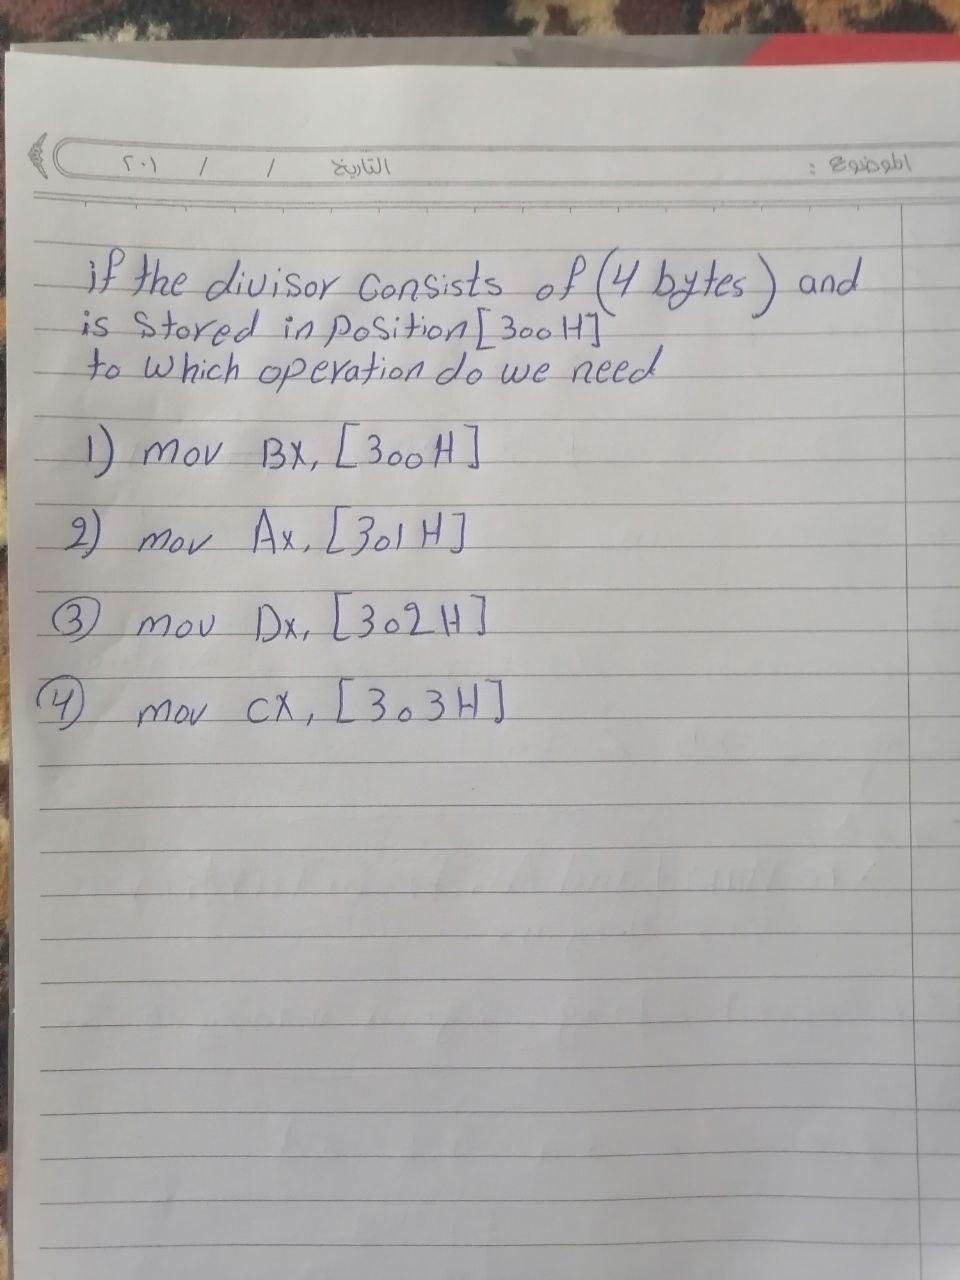 الموضوع : التاريخ / / ٢٠١
if the divisor Consists of (4 bytes) and
is Stored in Position [300H]
to which operation do we need
1) mov BX, [300H]
2) mov Ax, [301H]
3) mov Dx, [302H]
4) mov CX, [303H]